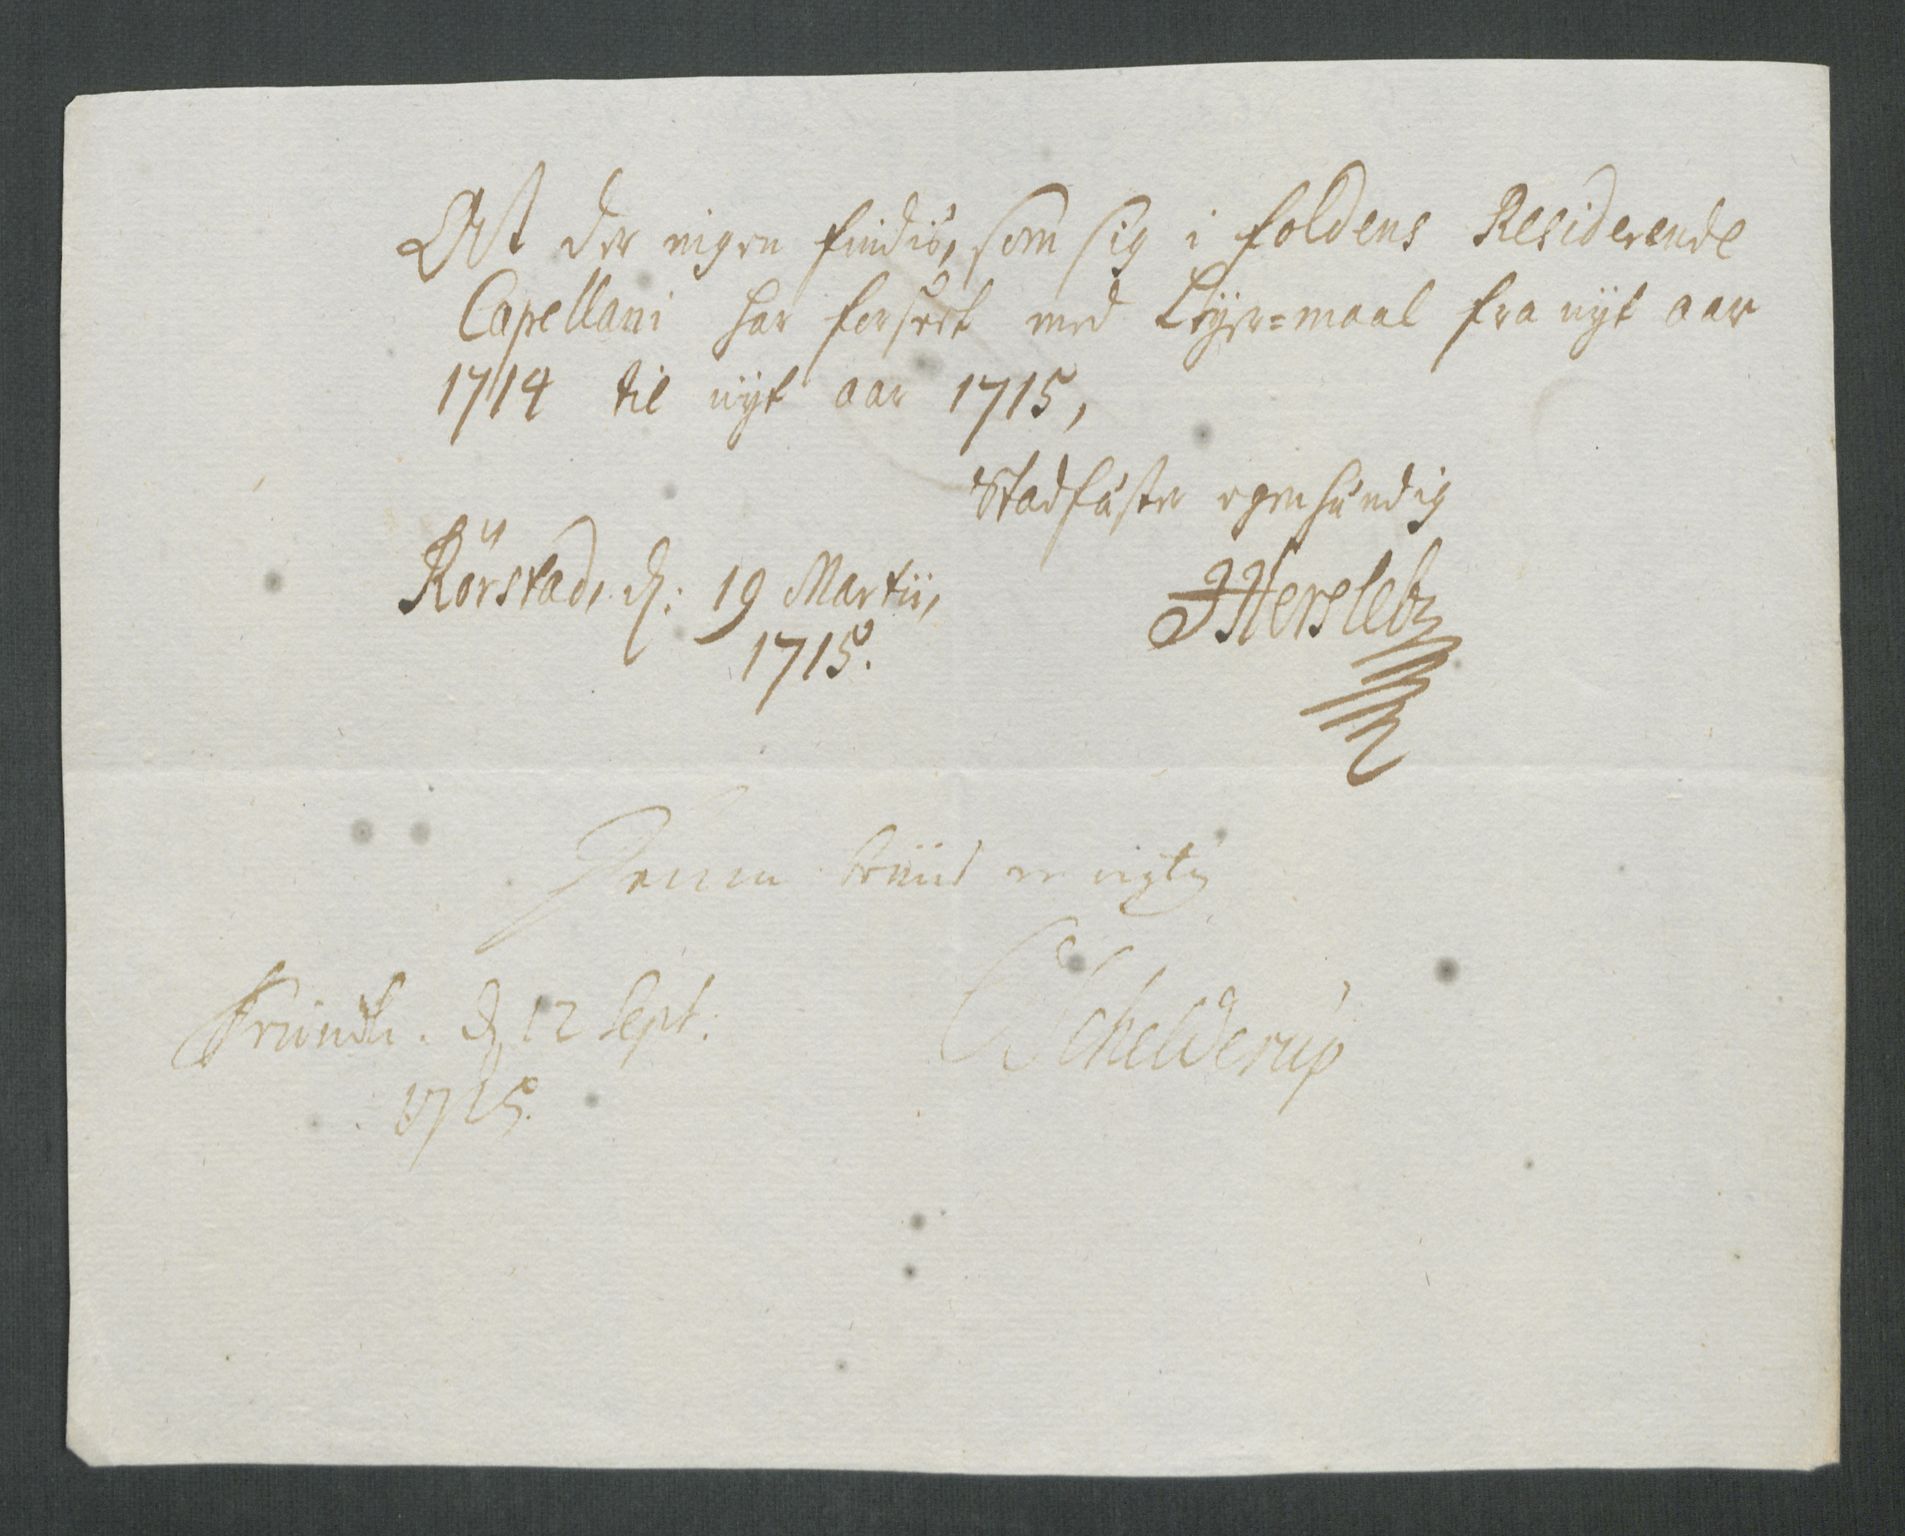 At der ingen findis, som sig i foldens Residerende
Capellani har forseet med Leyer=maal fra nyt aar
1714 til nyt aar 1715,
Stadfäster egenhändig
Rörstad, d: 19 Martii,
1715.
JHersleb
Denne er rigtig
Trundh. d 12 Sept:
1715.
Schelderup